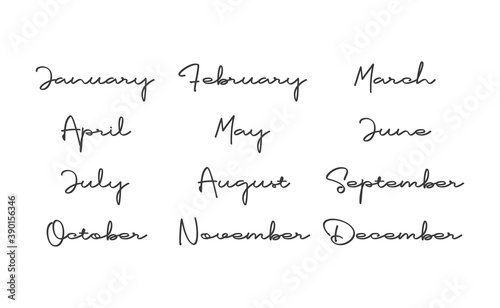 January February March
April May June
July August September
October November December
Adobe Stock | #390156346